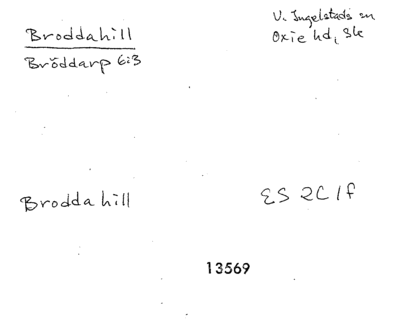 Broddahill
Bröddarp 6:3
V. Ingelstads sn
Oxie hd, Sk
Broddahill
ES 2C 1f
13569